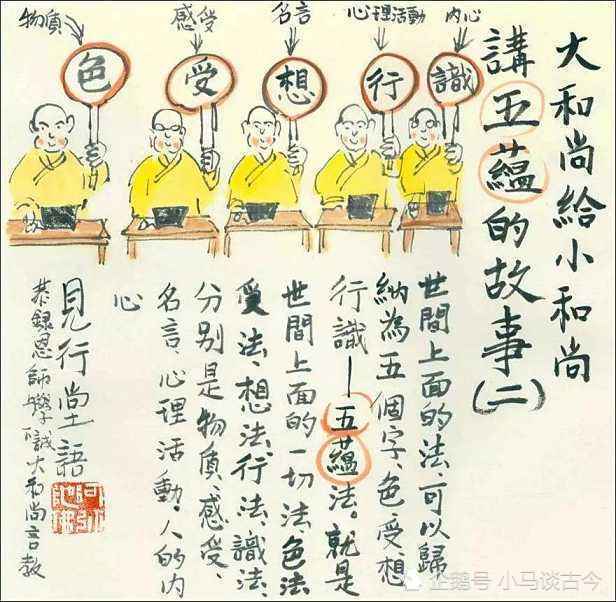 大和尚給小和尚
講五蘊的故事(二)
物質
感受
名言
心理活動
内心
色
受
想
行
識
世間上面的法、可以歸
納為五個字、色、受、想
行識—五蘊法。就是
世間上面的一切法、色法
受法、想法、行法、識法、
分别是物質、感受、
名言、心理活動。人的内
心
見行堂語
恭録恩師學誠大和尚言教
企鹅号 小马谈古今